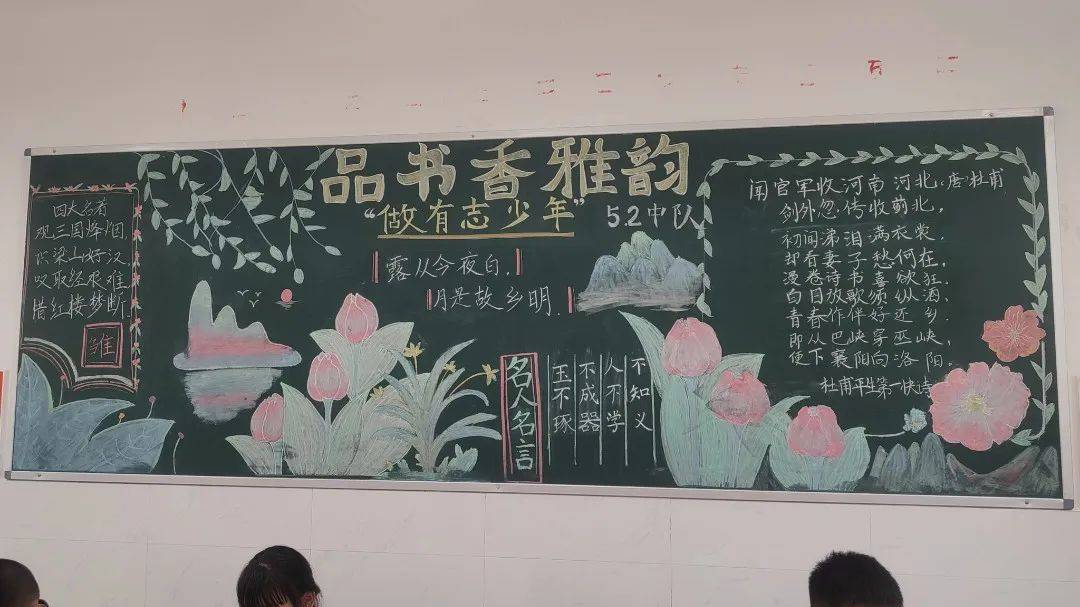 品书香雅韵
“做有志少年” 5.2中队
四大名著
观三国烽烟
识梁山好汉
叹取经艰难
惜红楼梦断
雏
露从今夜白，
月是故乡明．
名人名言
玉不琢
不成器
人不学
不知义
闻官军收河南河北，唐·杜甫
剑外忽传收蓟北，
初闻涕泪满衣裳，
却看妻子愁何在，
漫卷诗书喜欲狂，
白日放歌须纵酒，
青春作伴好还乡．
即从巴峡穿巫峡，
便下襄阳向洛阳．
杜甫平生第一快诗
万